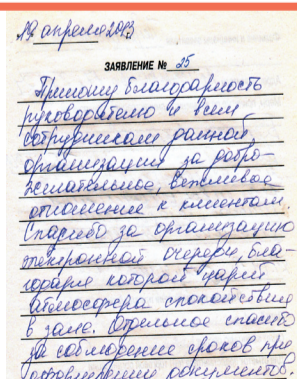 19 апреля 2013
ЗАЯВЛЕНИЕ № 25
Приношу благодарность
руководителю и всем
сотрудникам данной
организации за добро-
желательное, вежливое
отношение к клиентам.
Спасибо за организацию
электронной очереди, бла-
годаря которой царит
атмосфера спокойствия
в зале. Отдельное спасибо
за соблюдение сроков при
оформлении документов.